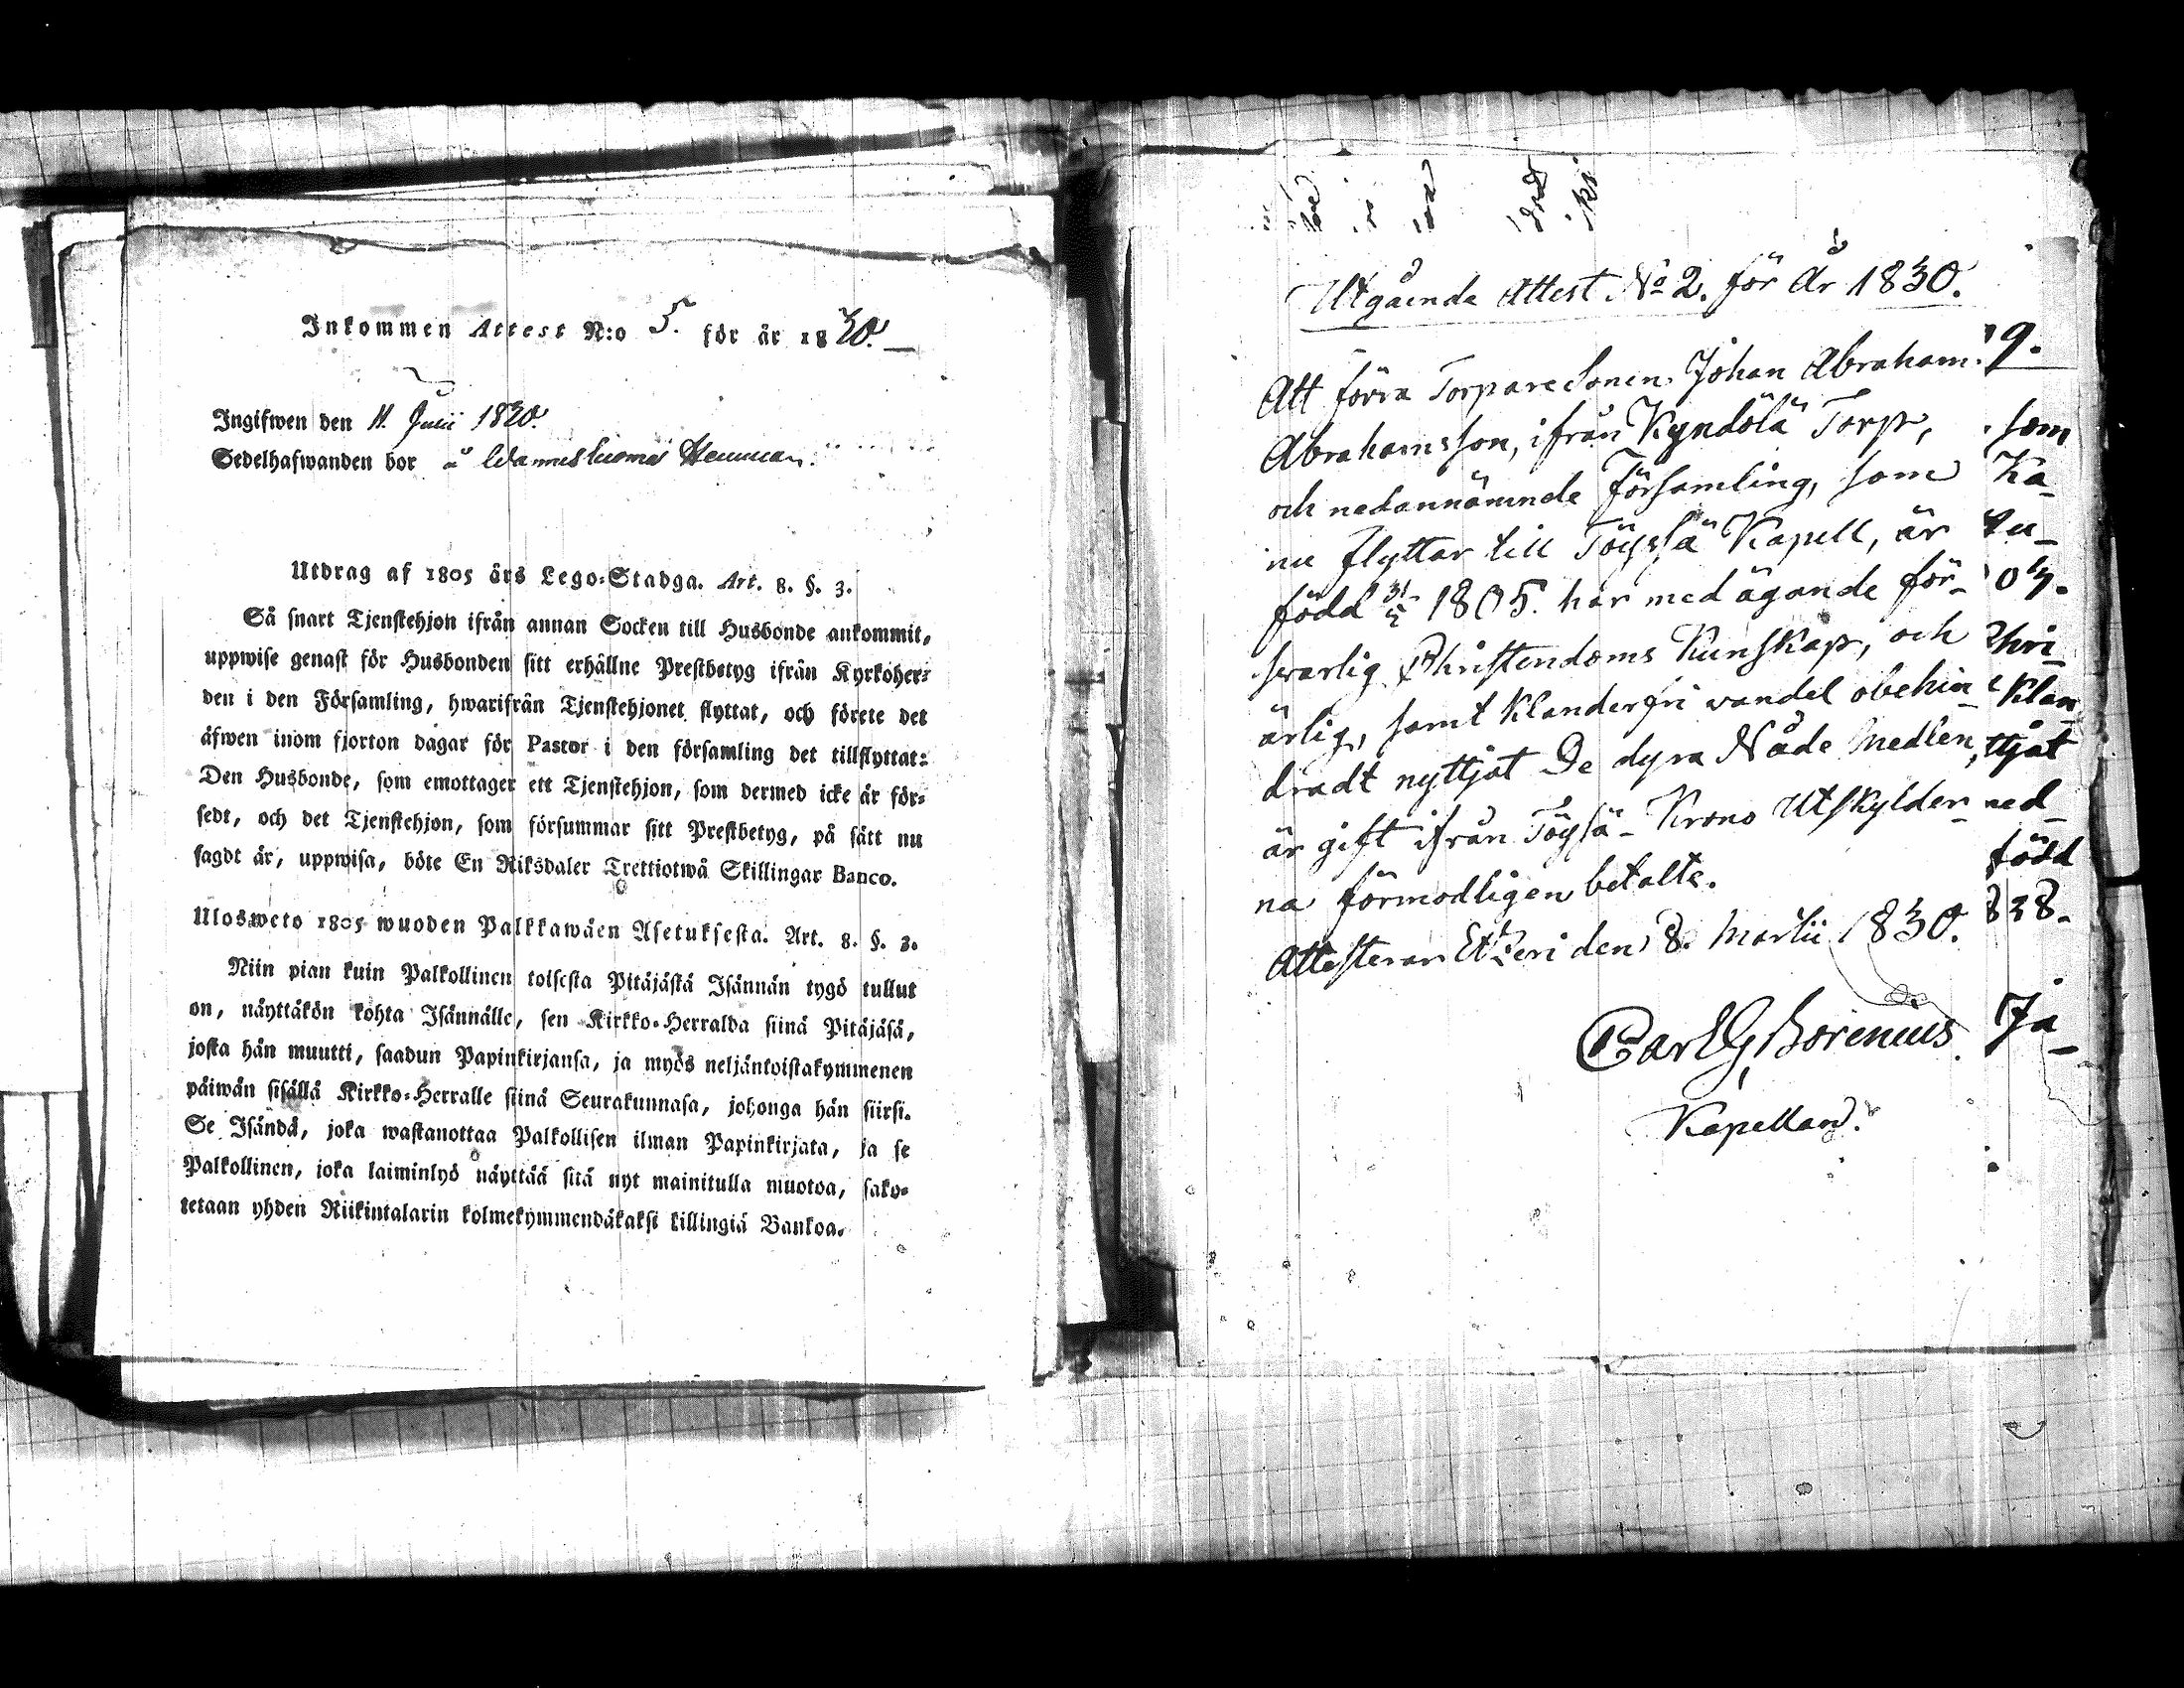 Inkommen Attest N:o 5. för år 1830.
Ingifwen den 11 Julii 1830.
Sedelhafwanden bor å Hemman.
Utdrag af 1805 års Lego-Stadga. Art. 8. §. 3.
Så snart Tjenstehjon ifrån annan Socken till Husbonde ankommit,
uppwise genast för Husbonden sitt erhållne Prestbetyg ifrån Kyrkoher-
den i den Församling, hwarifrån Tjenstehjonet flyttat, och förete det
äfwen inom fjorton dagar för Pastor i den församling det tillflyttat:
Den Husbonde, som emottager ett Tjenstehjon, som dermed icke är för-
sedt, och det Tjenstehjon, som försummar sitt Prestbetyg, på sätt nu
sagdt är, uppwisa, böte En Riksdaler Trettiotwå Skillingar Banco.
Ulosweto 1805 wuoden Palkkawäen Asetuksesta. Art. 8. §. 3.
Niin pian kuin Palkollinen toisesta Pitäjästä Isännän tygö tullut
on, näyttäkön kohta Isännälle, sen Kirkko-Herralda siinä Pitäjäsä,
josta hän muutti, saadun Papinkirjansa, ja myös neljäntoistakymmenen
päiwän sisällä Kirkko-Herralle siinä Seurakunnasa, johonga hän siirsi.
Se Isändä, joka wastanottaa Palkollisen ilman Papinkirjata, ja se
Palkollinen, joka laiminlyö näyttää sitä nyt mainitulla muotoa, sako-
tetaan yhden Riikintalarin kolmekymmendäkaksi killingiä Bankoa.
Utgående Attest No 2. för År 1830.
Att förra Torpare Sonen Johan Abraham
Abrahamsson, ifrån Kyndölä Torp,
och nedannämnde Församling, som
nu flyttar till Töysä Kapell, är
född 31/5 1805. har med ägande för-
svarlig Christendoms Kunskap, och
ärlig, samt Klanderfri vandel obehin-
dradt nyttjat De dyra Nåde Medlen,
är gift ifrån Töysä - Krono Utskylder-
na förmodligen betalte.
Attesterar Etzeri den 8. Martii 1830.
Carl G Borenius
Kapellan.
9.
som
Ka-
hri-
Klan
ttjat
ned-
född
838.
Ja-